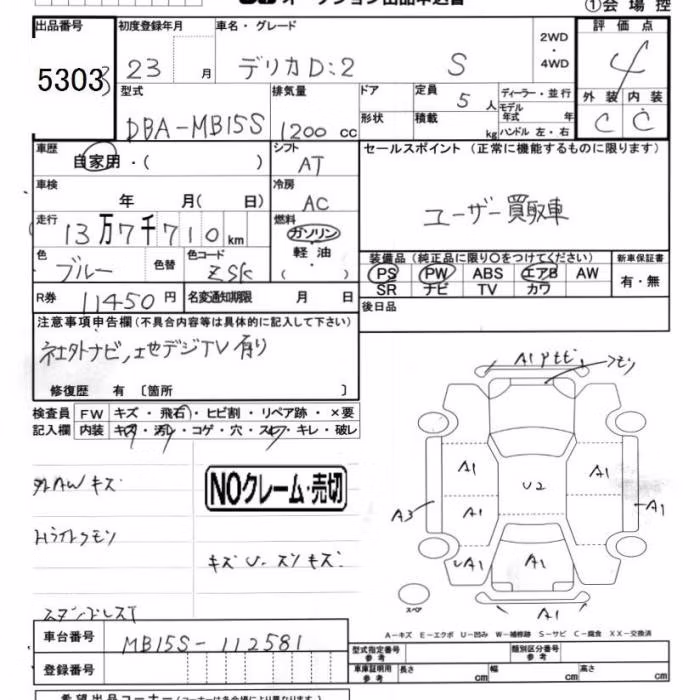 ①会場控
出品番号 初度登録年月 車名・グレード 2WD・4WD 評価点
5303 23 月 デリカD:2 S 4
型式 排気量 ドア 定員 5 人 ディーラー・並行 外装 内装
DBA-MB15S 1200 cc 形状 積載 kg モデル年式 年 ハンドル 左・右 C C
車歴 自家用・( ) シフト AT セールスポイント (正常に機能するものに限ります)
車検 年 月( 日) 冷房 AC ユーザー買取車
走行 13万7千710km 燃料 ガソリン・軽油・( )
装備品 (純正品に限り〇をつけてください) 新車保証書
色 ブルー 色替 色コード ZSK PS PW ABS エアB AW 有・無
SR ナビ TV カワ
R券 11450円 名変通知期限 月 日 後日品
注意事項申告欄(不具合内容等は具体的に記入して下さい)
社外ナビ,地デジTV有り
修復歴 有 〔箇所 〕
検査員 FW キズ・飛石・ヒビ割・リペア跡・×要
記入欄 内装 キズ・汚レ・コゲ・穴・スレ・キレ・破レ
外AWキズ
NOクレーム・売切
Hライトクモリ
キズ U・スリキズ
A1
A1 A1
U2
A3 A1 A1
UA1 A1
スペア
A1
A-キズ E-エクボ U-凹み W-補修跡 S-サビ C-腐食 XX-交換済
車台番号 MB15S-112581
型式指定番号 参考 類別区分番号 参考
登録番号 車庫証明用 参考 長さ cm 幅 cm 高さ cm
希望出品コーナー